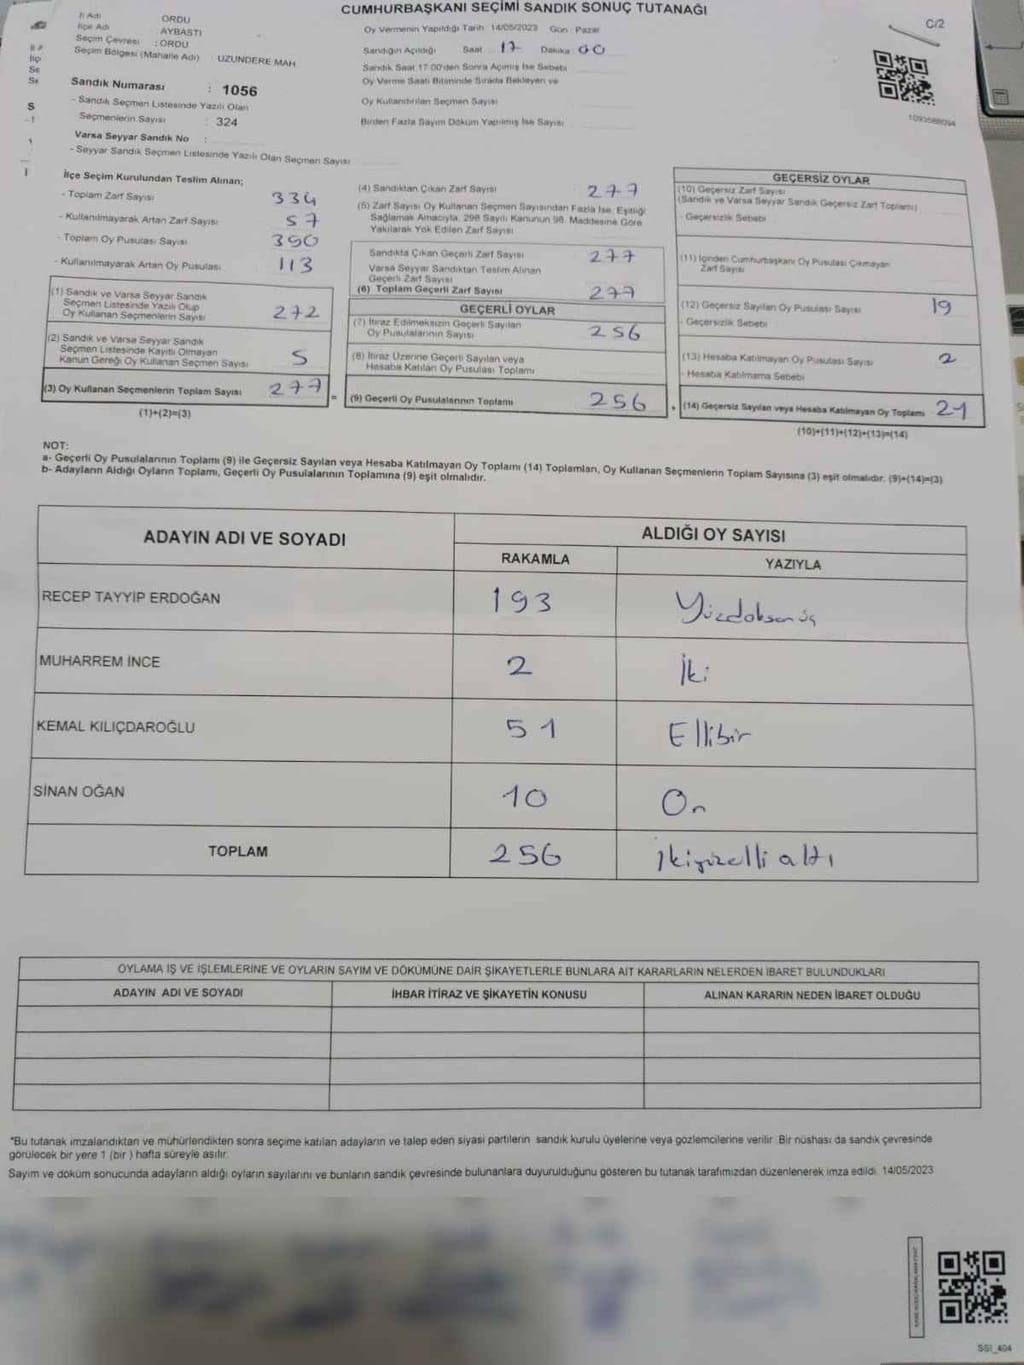 CUMHURBAŞKANI SEÇİMİ SANDIK SONUÇ TUTANAĞI
C/2
İl Adı ORDU
İlçe Adı AYBASTI
Seçim Çevresi : ORDU
Seçim Bölgesi (Mahalle Adı) : UZUNDERE MAH.
Sandık Numarası : 1056
- Sandık Seçmen Listesinde Yazılı Olan
Seçmenlerin Sayısı : 324
Varsa Seyyar Sandık No :
- Seyyar Sandık Seçmen Listesinde Yazılı Olan Seçmen Sayısı
Oy Vermenin Yapıldığı Tarih 14/05/2023 Gün : Pazar
Sandığın Açıldığı Saat 17 Dakika 00
Sandık Saat 17:00'den Sonra Açılmış İse Sebebi
Oy Verme Saati Bitiminde Sırada Bekleyen ve
Oy Kullandırılan Seçmen Sayısı
Birden Fazla Sayım Döküm Yapılmış İse Sayısı
İlçe Seçim Kurulundan Teslim Alınan;
- Toplam Zarf Sayısı 334
- Kullanılmayarak Artan Zarf Sayısı 57
- Toplam Oy Pusulası Sayısı 390
- Kullanılmayarak Artan Oy Pusulası 113
(1) Sandık ve Varsa Seyyar Sandık
Seçmen Listesinde Yazılı Olup
Oy Kullanan Seçmenlerin Sayısı 272
(2) Sandık ve Varsa Seyyar Sandık
Seçmen Listesinde Kayıtlı Olmayan
Kanun Gereği Oy Kullanan Seçmen Sayısı 5
(3) Oy Kullanan Seçmenlerin Toplam Sayısı 277
(1)+(2)=(3)
(4) Sandıktan Çıkan Zarf Sayısı 277
(5) Zarf Sayısı Oy Kullanan Seçmen Sayısından Fazla İse, Eşitliği
Sağlamak Amacıyla, 298 Sayılı Kanunun 98. Maddesine Göre
Yakılarak Yok Edilen Zarf Sayısı
Sandıkta Çıkan Geçerli Zarf Sayısı 277
Varsa Seyyar Sandıktan Teslim Alınan
Geçerli Zarf Sayısı
(6) Toplam Geçerli Zarf Sayısı 277
GEÇERLİ OYLAR
(7) İtiraz Edilmeksizin Geçerli Sayılan
Oy Pusulalarının Sayısı 256
(8) İtiraz Üzerine Geçerli Sayılan veya
Hesaba Katılan Oy Pusulası Toplamı
= (9) Geçerli Oy Pusulalarının Toplamı 256 +
GEÇERSİZ OYLAR
(10) Geçersiz Zarf Sayısı
(Sandık ve Varsa Seyyar Sandık Geçersiz Zarf Toplamı)
- Geçersizlik Sebebi
(11) İçinden Cumhurbaşkanı Oy Pusulası Çıkmayan
Zarf Sayısı
(12) Geçersiz Sayılan Oy Pusulası Sayısı 19
- Geçersizlik Sebebi
(13) Hesaba Katılmayan Oy Pusulası Sayısı 2
- Hesaba Katılmama Sebebi
(14) Geçersiz Sayılan veya Hesaba Katılmayan Oy Toplamı 21
(10)+(11)+(12)+(13)=(14)
NOT:
a- Geçerli Oy Pusulalarının Toplamı (9) ile Geçersiz Sayılan veya Hesaba Katılmayan Oy Toplamı (14) Toplamları, Oy Kullanan Seçmenlerin Toplam Sayısına (3) eşit olmalıdır. (9)+(14)=(3)
b- Adayların Aldığı Oyların Toplamı, Geçerli Oy Pusulalarının Toplamına (9) eşit olmalıdır.
ADAYIN ADI VE SOYADI ALDIĞI OY SAYISI
RAKAMLA YAZIYLA
RECEP TAYYİP ERDOĞAN 193 Yüzdoksanüç
MUHARREM İNCE 2 İki
KEMAL KILIÇDAROĞLU 51 Ellibir
SİNAN OĞAN 10 On
TOPLAM 256 İkiyüzelli altı
OYLAMA İŞ VE İŞLEMLERİNE VE OYLARIN SAYIM VE DÖKÜMÜNE DAİR ŞİKAYETLERLE BUNLARA AİT KARARLARIN NELERDEN İBARET BULUNDUKLARI
ADAYIN ADI VE SOYADI İHBAR İTİRAZ VE ŞİKAYETİN KONUSU ALINAN KARARIN NEDEN İBARET OLDUĞU
*Bu tutanak imzalandıktan ve mühürlendikten sonra seçime katılan adayların ve talep eden siyasi partilerin sandık kurulu üyelerine veya gözlemcilerine verilir. Bir nüshası da sandık çevresinde
görülecek bir yere 1 (bir ) hafta süreyle asılır.
Sayım ve döküm sonucunda adayların aldığı oyların sayılarını ve bunların sandık çevresinde bulunanlara duyurulduğunu gösteren bu tutanak tarafımızdan düzenlenerek imza edildi. 14/05/2023
SSI_404